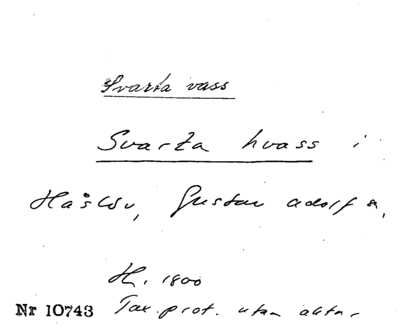 Svarta vass
Svarta hvass i
Haslöv, Gustav Adolf s,
H. 1800
Nr 10743 Tax. prot. utan aktnr